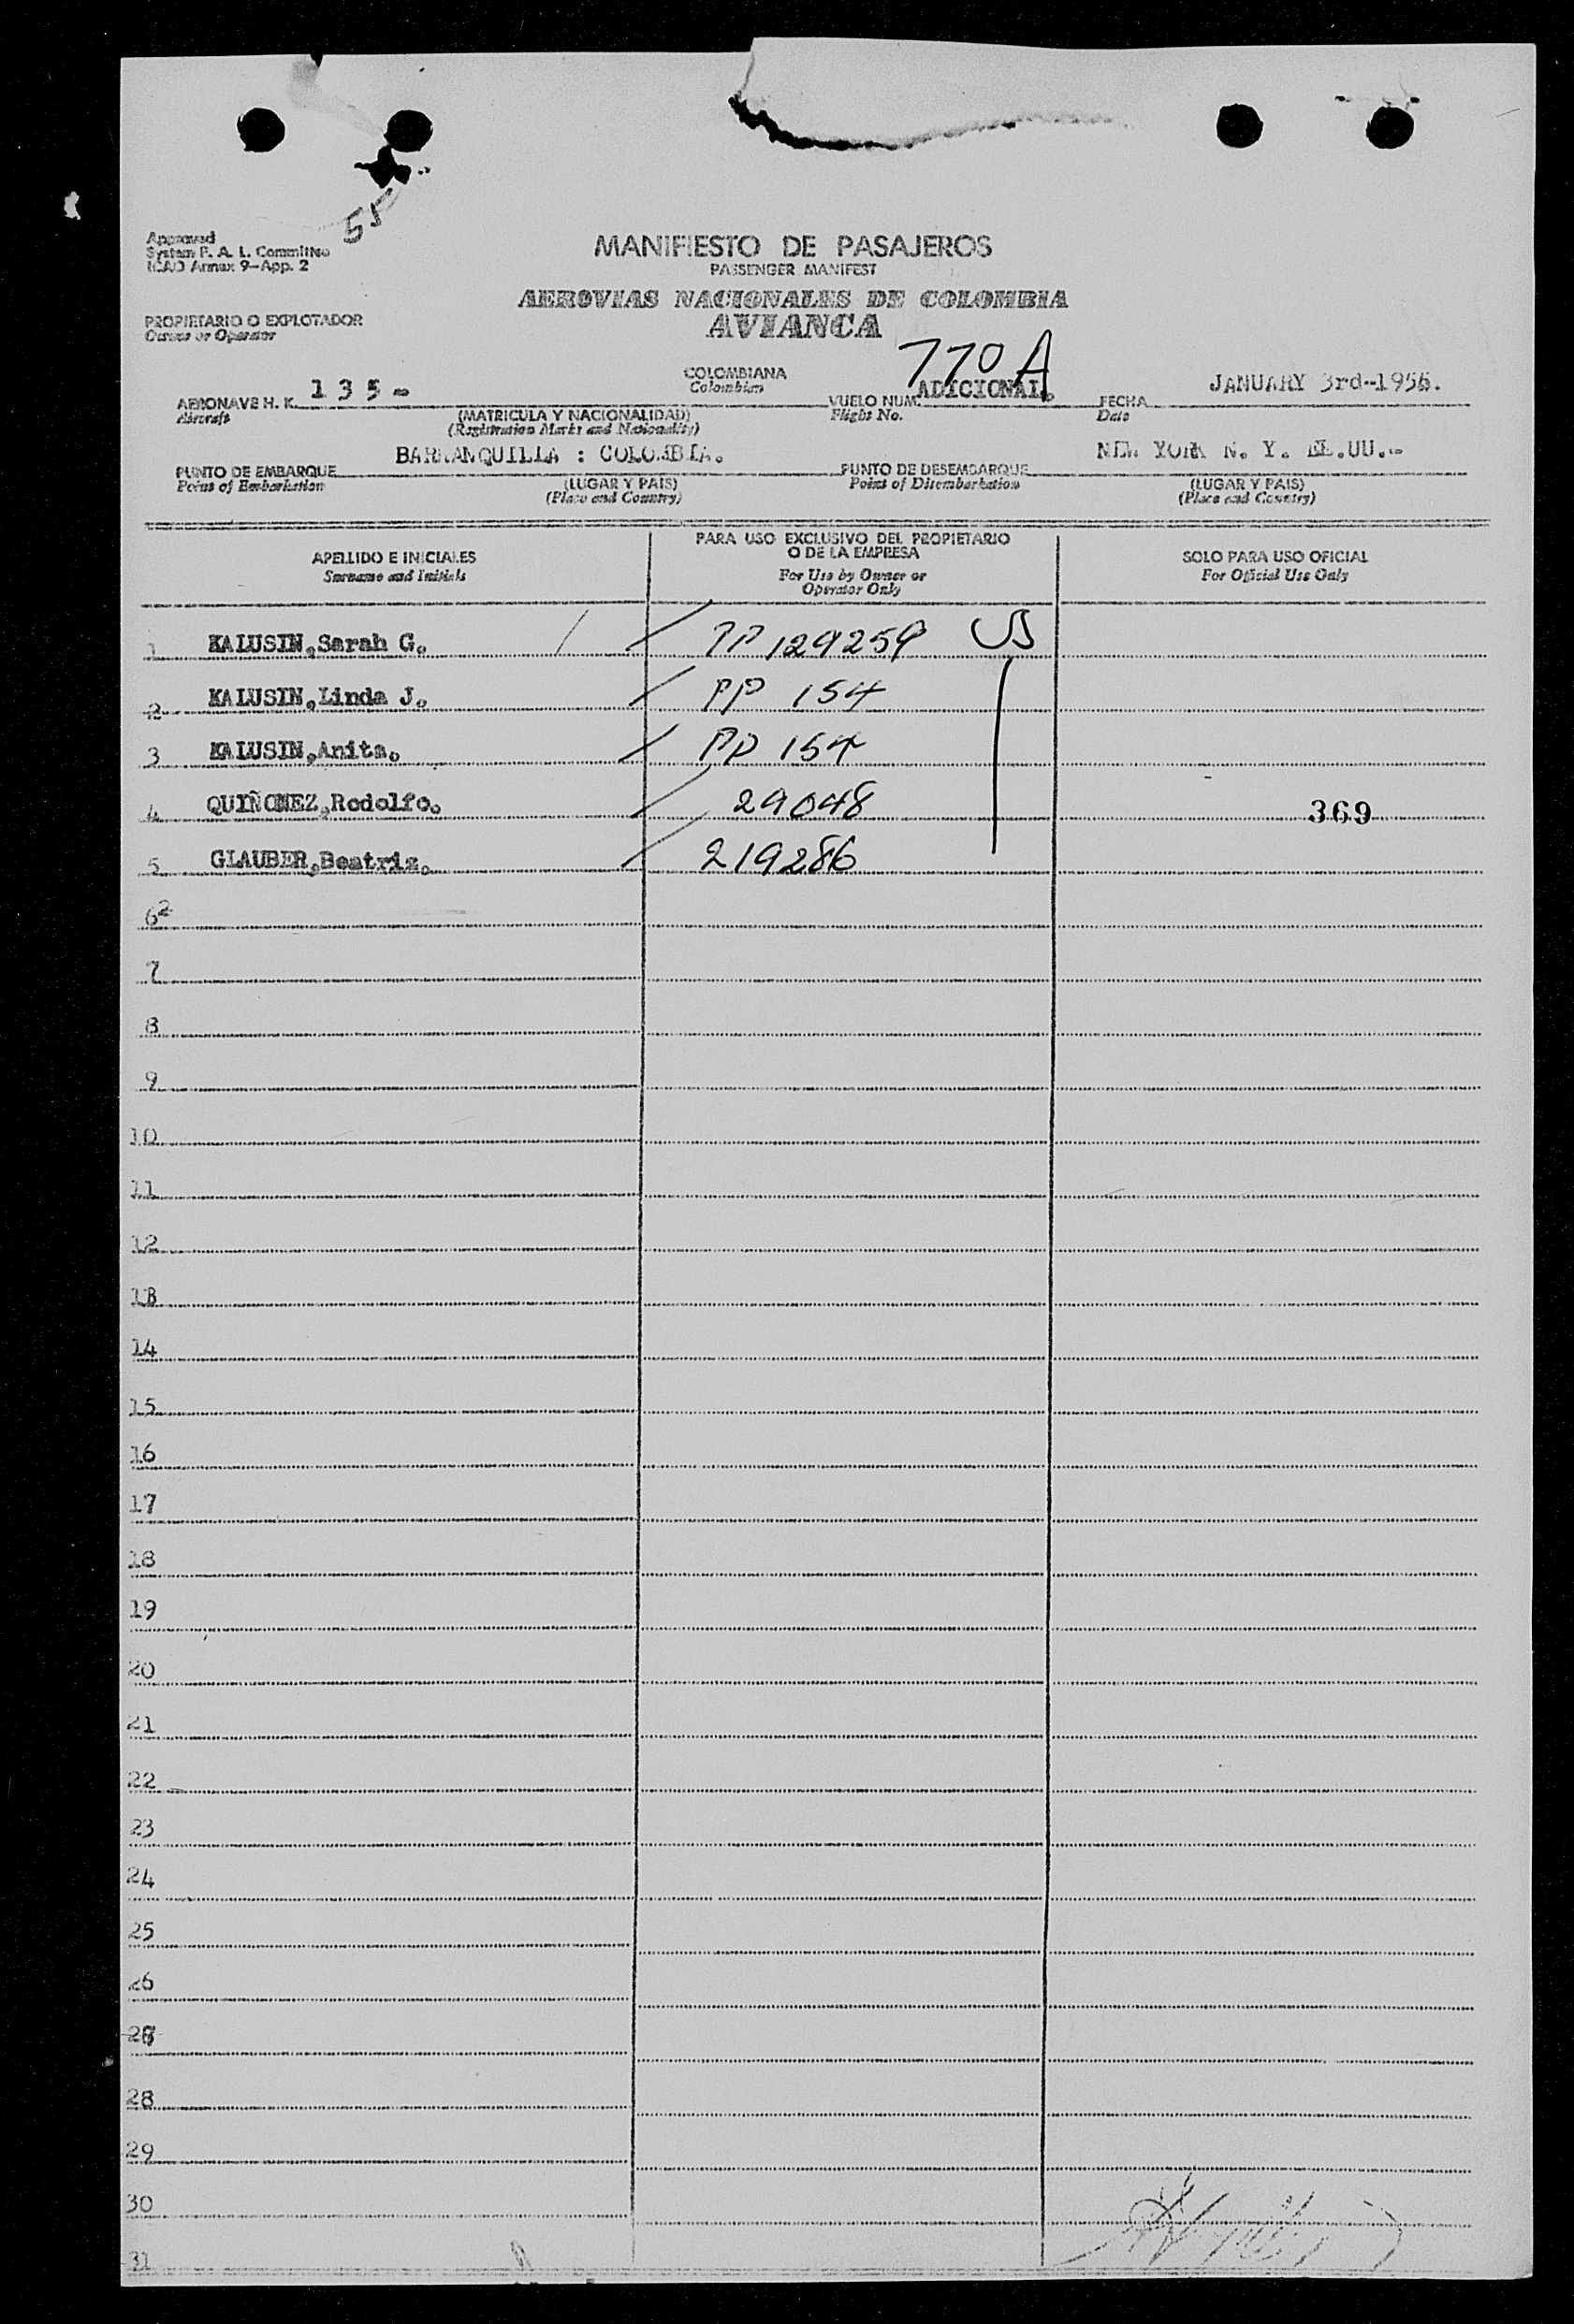 55
Approved
System F. A. L. Committee
ICAO Annex 9-App. 2
MANIFIESTO DE PASAJEROS
PASSENGER MANIFEST
AEROVIAS NACIONALES DE COLOMBIA
AVIANCA
PROPIETARIO O EXPLOTADOR
Owner or Operator
770 A
AERONAVE H. K. 135- COLOMBIANA VUELO NUM. ADICIONAL. FECHA JANUARY 3rd-1956.
Aircraft (MATRICULA Y NACIONALIDAD) Colombian Flight No. Date
(Registration Marks and Nationality)
PUNTO DE EMBARQUE BARRANQUILLA : COLOMBIA. PUNTO DE DESEMBARQUE NEW YORK N. Y. EE.UU.-
Point of Embarkation (LUGAR Y PAIS) Point of Disembarkation (LUGAR Y PAIS)
(Place and Country) (Place and Country)
APELLIDO E INICIALES PARA USO EXCLUSIVO DEL PROPIETARIO O DE LA EMPRESA SOLO PARA USO OFICIAL
Surname and Initials For Use by Owner or Operator Only For Official Use Only
1 KALUSIN,Sarah G. / PP 129259 US
2 KALUSIN,Linda J. PP 154
3 KALUSIN,Anita. PP 154
4 QUIÑONEZ,Rodolfo. 29048 369
5 GLAUBER,Beatriz. 219286
6
7
8
9
10
11
12
13
14
15
16
17
18
19
20
21
22
23
24
25
26
27
28
29
30
31